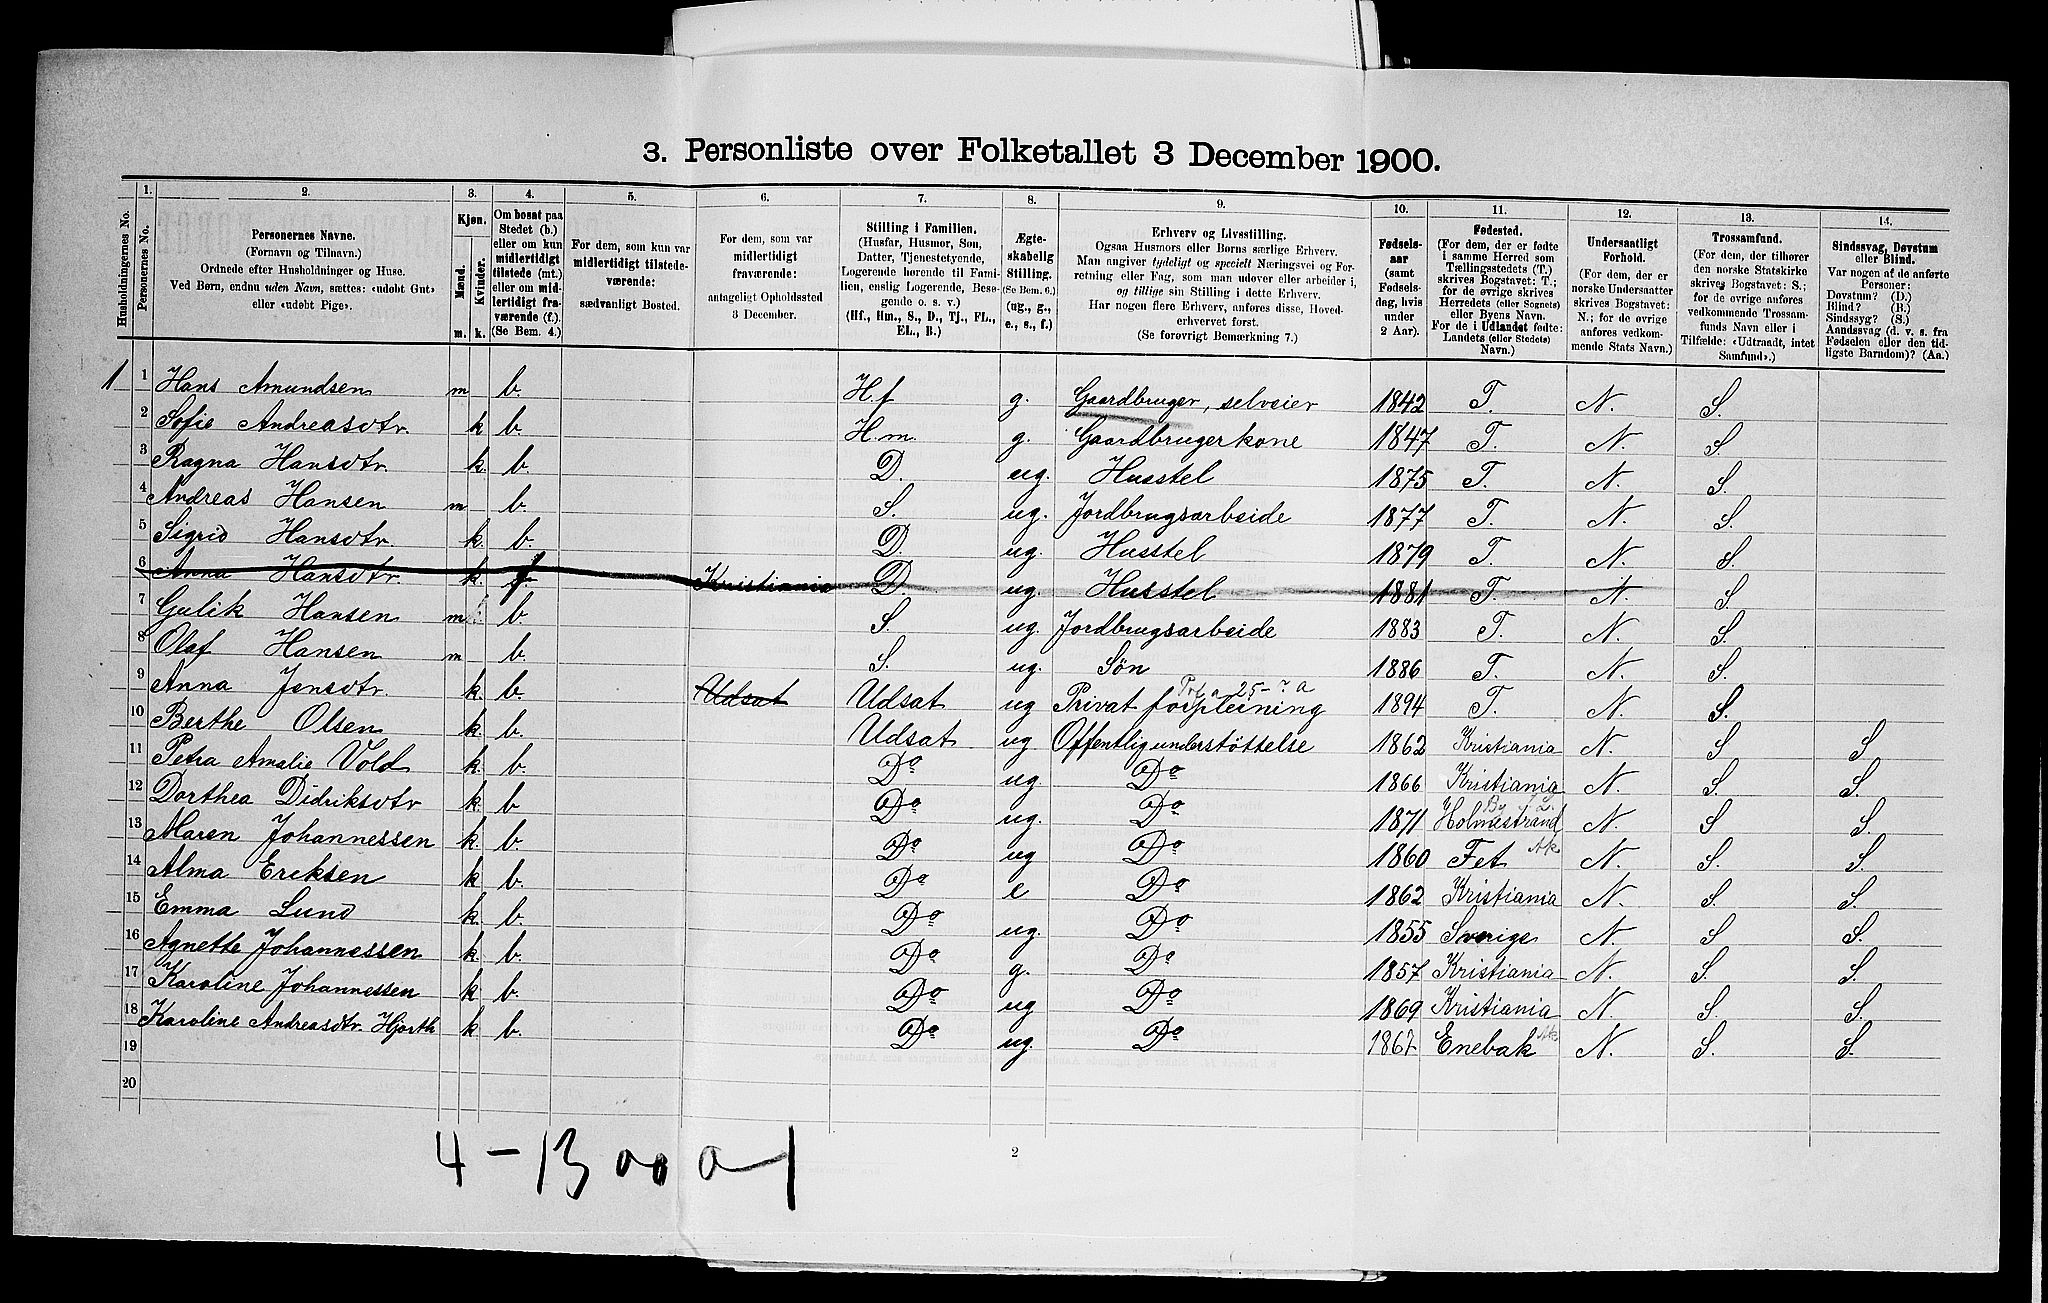 3. Personliste over Folketallet 3 December 1900.
Husholdningernes No.
1. Personernes No.
2. Personernes Navne. (Fornavn og Tilnavn.) Ordnede efter Husholdninger og Huse. Ved Børn, endnu uden Navn, sættes: «udøbt Gut» eller «udøbt Pige».
3. Kjøn. Mænd. m. Kvinder. k.
4. Om bosat paa Stedet (b.) eller om kun midlertidigt tilstede (mt.) eller om midlertidigt fraværende (f.) (Se Bem. 4.)
5. For dem, som kun var midlertidigt tilstedeværende: sædvanligt Bosted.
6. For dem, som var midlertidigt fraværende: antageligt Opholdssted 3 December.
7. Stilling i Familien. (Husfar, Husmor, Søn, Datter, Tjenestetyende, Logerende hørende til Familien, enslig Logerende, Besøgende o. s. v.) (Hf., Hm., S., D., Tj., FL., EL., B.)
8. Ægteskabelig Stilling. (Se Bem. 6.) (ug., g., e., s., f.)
9. Erhverv og Livsstilling. Ogsaa Husmors eller Børns særlige Erhverv. Man angiver tydeligt og specielt Næringsvei og Forretning eller Fag, som man udøver eller arbeider i, og tillige sin Stilling i dette Erhverv. Har nogen flere Erhverv, anføres disse, Hovederhvervet først. (Se forøvrigt Bemærkning 7.)
10. Fødselsaar (samt Fødselsdag, hvis under 2 Aar).
11. Fødested. (For dem, der er fødte i samme Herred som Tællingsstedets (T.) skrives Bogstavet: T.; for de øvrige skrives Herredets (eller Sognets) eller Byens Navn. For de i Udlandet fødte: Landets (eller Stedets) Navn.)
12. Undersaatligt Forhold. (For dem, der er norske Undersaatter skrives Bogstavet: N.; for de øvrige anføres vedkommende Stats Navn.)
13. Trossamfund. (For dem, der tilhører den norske Statskirke skrives Bogstavet: S.; for de øvrige anføres vedkommende Trossamfunds Navn eller i Tilfælde: «Udtraadt, intet Samfund».)
14. Sindssvag, Døvstum eller Blind. Var nogen af de anførte Personer: Døvstum? (D.) Blind? (B.) Sindssyg? (S.) Aandssvag (d. v. s. fra Fødselen eller den tidligste Barndom)? (Aa.)
1 1 Hans Amundsen m b. H.f g. Gaardbruger, selveier 1842 T. N. S.
2 Sofie Andreasdtr. k b. H.m. g. Gaardbrugerkone 1847 T. N. S.
3 Ragna Hansdtr k. b. D. ug. Husstel 1875 T. N. S.
4 Andreas Hansen m b. S. ug. Jordbrugsarbeide 1877 T. N. S.
5 Sigrid Hansdtr. k. b. D. ug. Husstel 1879 T. N. S.
6 Anna Hansdtr. k. f Kristiania D. ug. Husstel 1881 T N S.
7 Gulik Hansen m b. S. ug. Jordbrugsarbeide 1883 T. N. S.
8 Olaf Hansen m b. S. ug. Sön 1886 T. N. S.
9 Anna Jensdtr. k. b. Udsat Udsat ug Privat forpleining 1894 T. N. S.
10 Berthe Olsen k. b. Udsat ug Offentlig understöttelse 1862 Kristiania N. S S
11 Petra Amalie Vold k. b. Do ug. Do 1866 Kristiania N. S. S.
12 Dorthea Didriksdtr k. b Do ug. Do 1871 Holmestrand N. S S.
13 Maren Johannessen k. b. Do ug Do 1860 Fet Ak N. S. S
14 Alma Eriksen k b. Do e Do 1862 Kristiania N. S. S.
15 Emma Lund k b. Do ug. Do 1855 Sverige N. S S.
16 Agnette Johannessen k. b. Do g. Do 1857 Kristiania N. S. S.
17 Karoline Johannessen k b. Do ug Do 1869 Kristiania N. S. S
18 Karoline Andreasdtr. Hjorth k b. Do ug. Do 1862 Enebak Ak N. S. S.
19
20
2